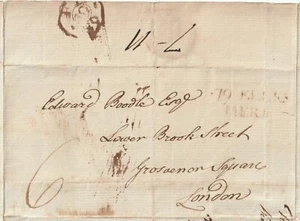 Edward Boodle Esqr
Lower Brook Street
Grosvenor Square
London
6